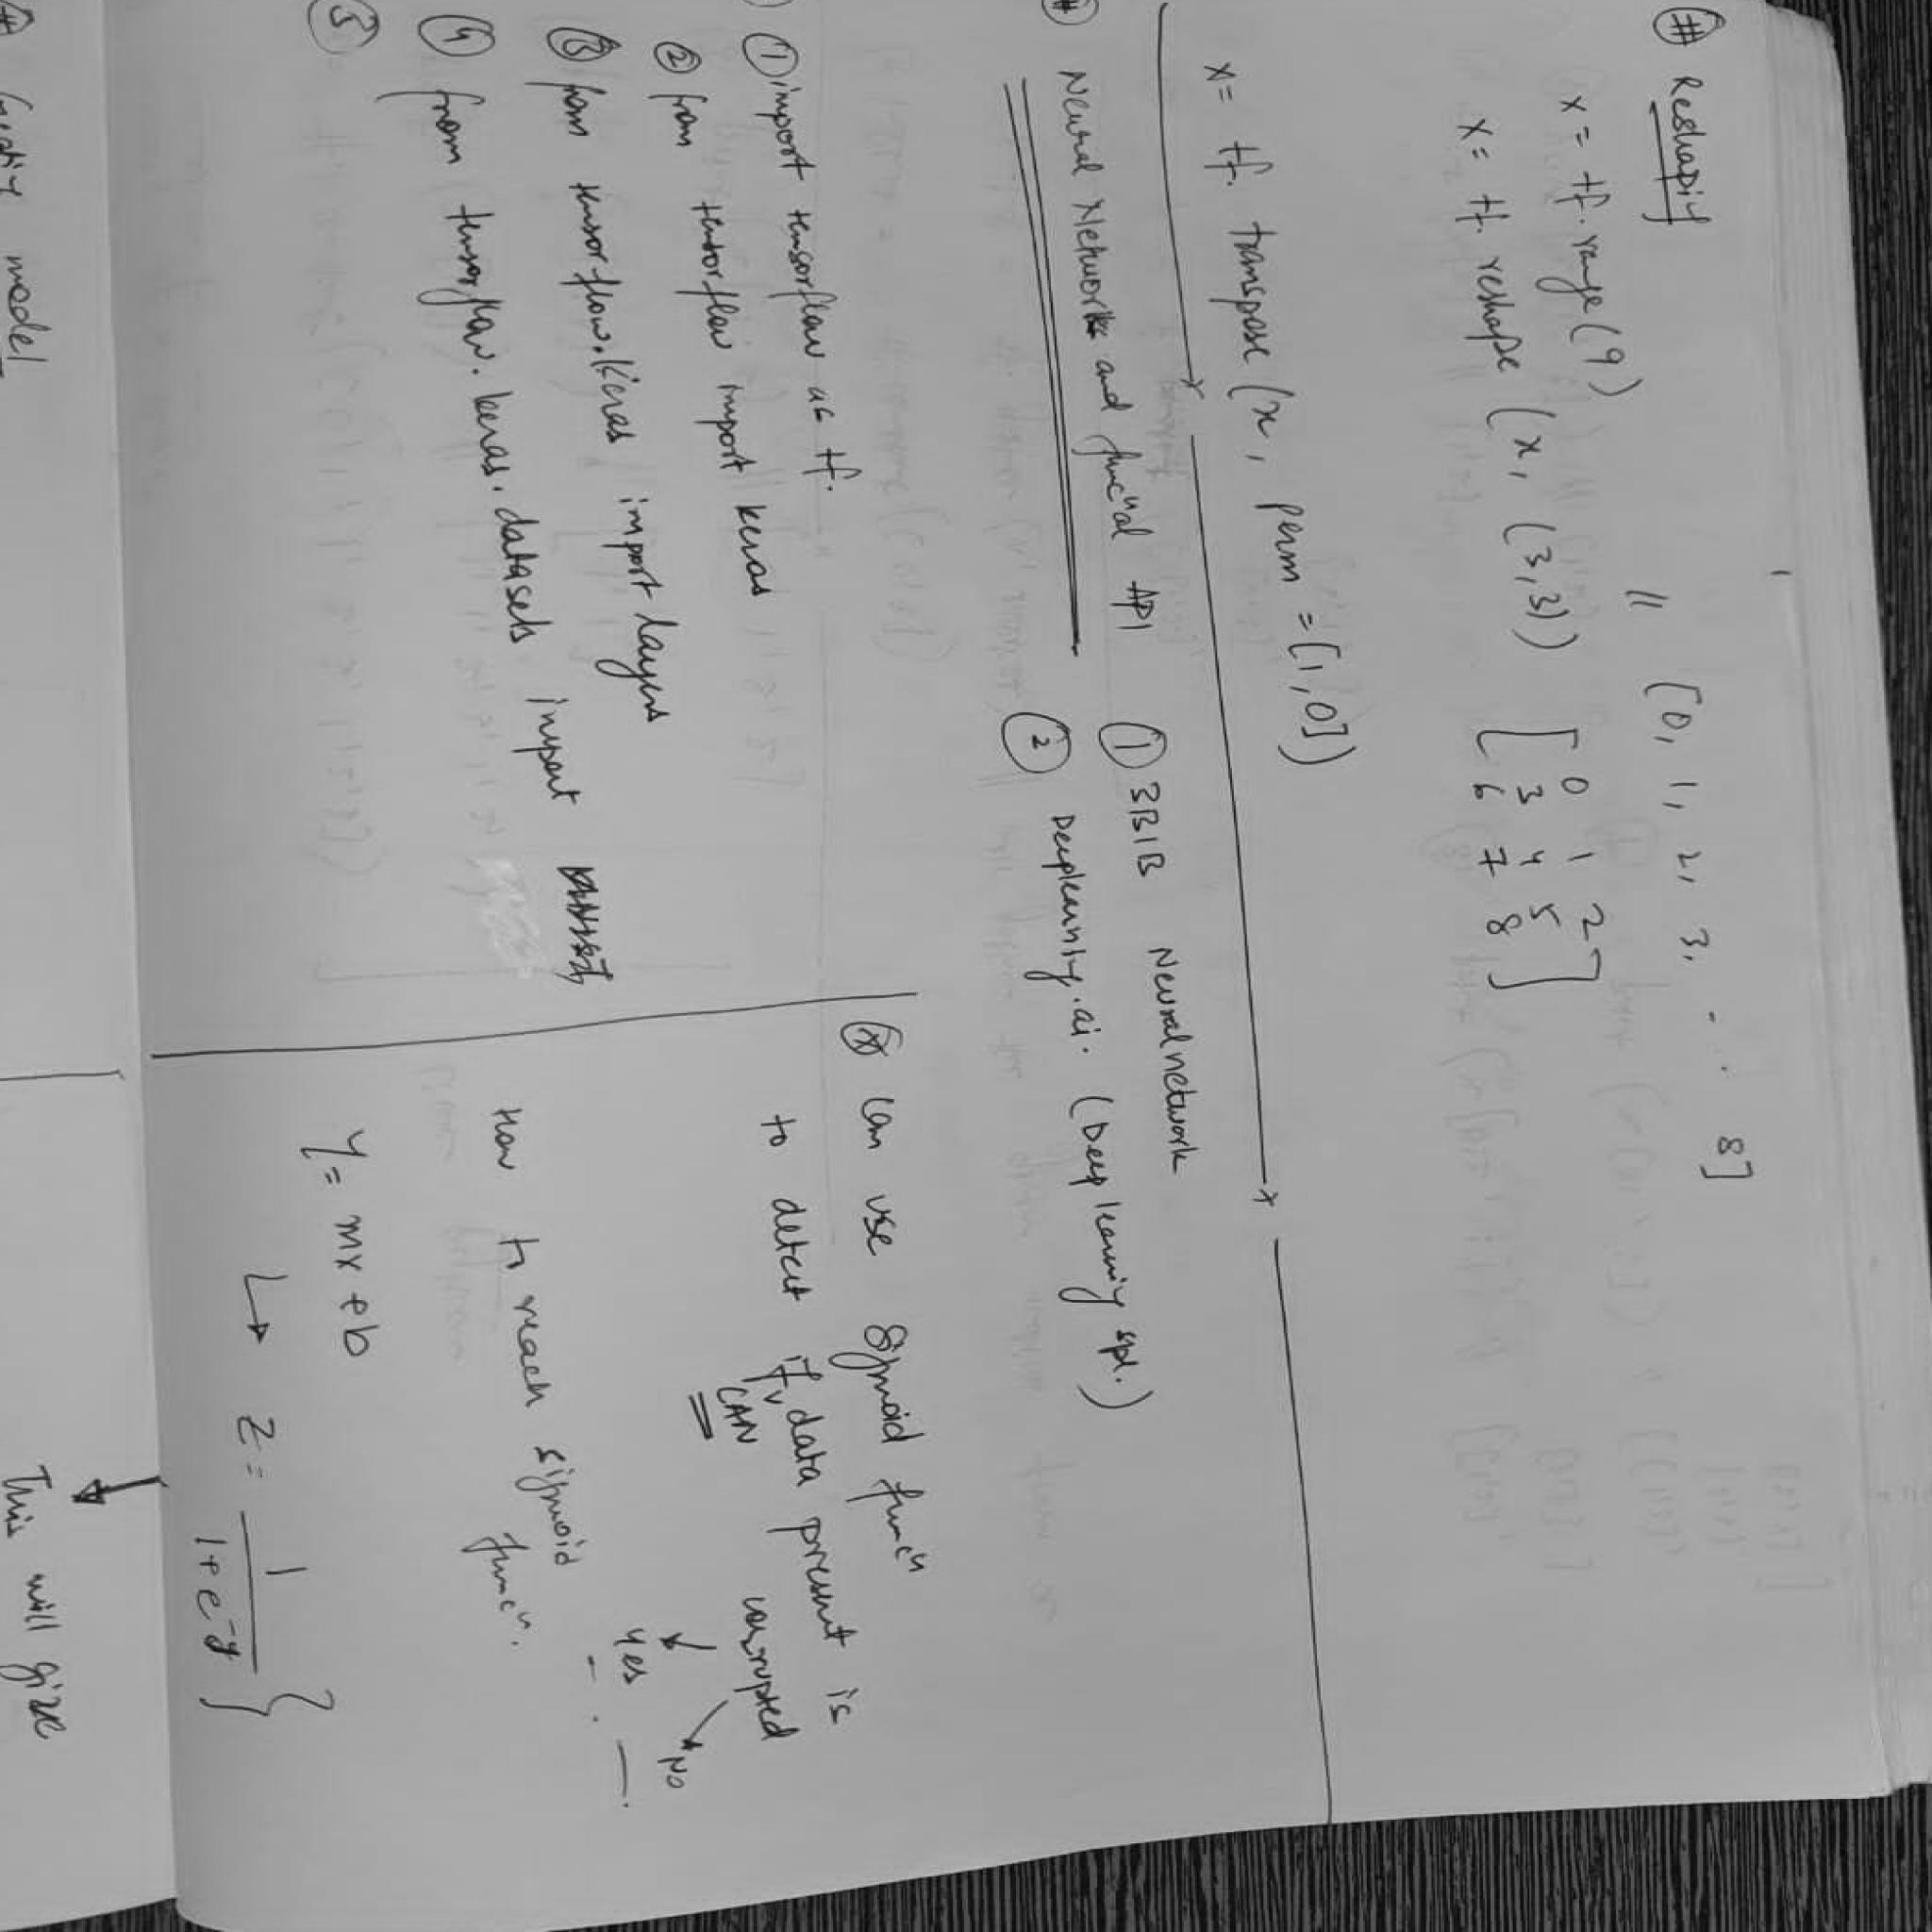 # Reshapig
x = tf.range(9) // [0, 1, 2, 3, - . . 8]
x = tf. reshape (x, (3,3)) [0 1 2
3 4 5
6 7 8]
x = tf. transpose (x, perm = [1,0])
# Neural Networks and funcⁿal API ① 3B1B Neural network
② Deeplearning.ai. (Deep learning spl.)
① import tensorflow as tf.
② from tensorflow import keras
③ from tensorflow.Keras import layers
④ from tensorflow.keras.datasets import
⑤
* Can use sigmoid funcⁿ
to detect if data present is
CAN corrupted
Yes No
How to reach sigmoid
funcⁿ.
y = mx + b
↳ z = 1 / 1+e^-y }
# Creating model
This will give